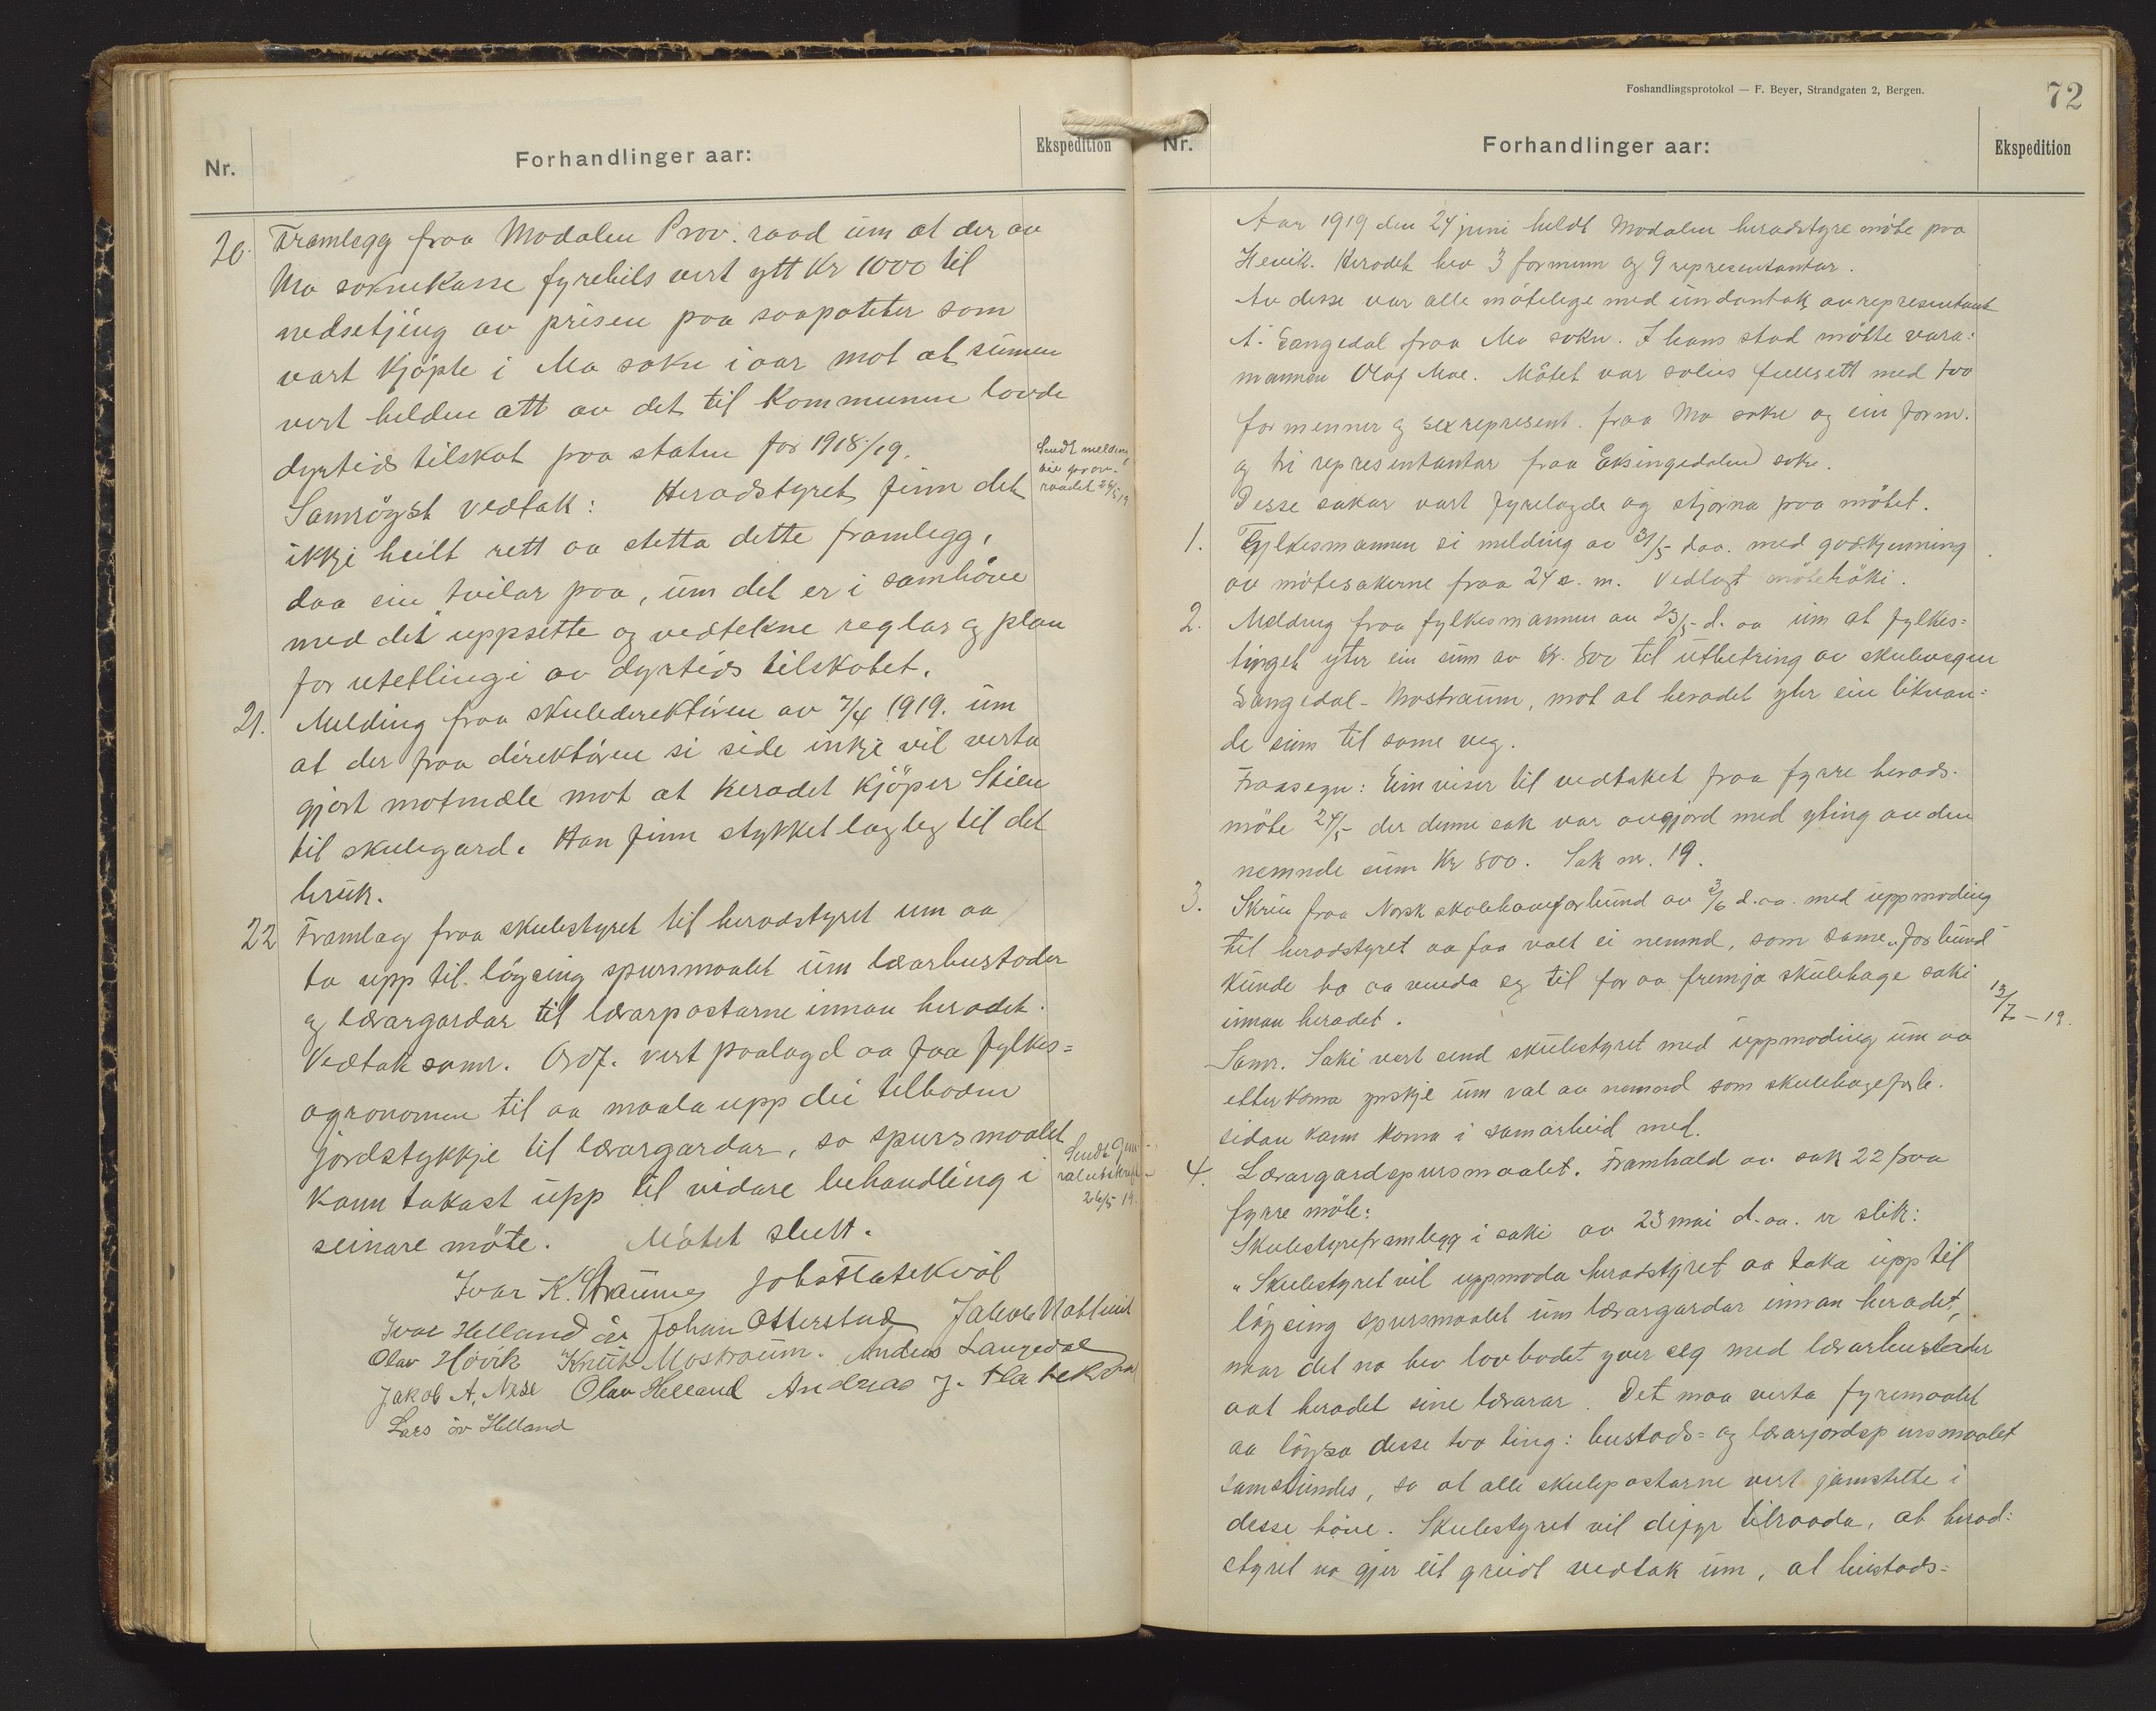 Nr.
Forhandlinger aar:
Ekspedition
20. Framlegg fraa Modalen Prov. raad üm at der av
Mo soknekasse fyrebils vert ytt Kr 1000 til
nedsetjing av prisen paa saapoteter som
vart kjöpte i Mo sokn i aar mot at sümen
vert helden att av det til kommunen lovde
dyrtids tilskot paa staten for 1918/19.
Samröyst vedtak: Heradstyret finn det
ikkje heilt rett aa stetta dette framlegg,
daa ein tvilar paa, üm det er i samhöve
med dei uppsette og vedtekne reglar og plan
for utetlingi av dyrtids tilskotet.
Sendt melding
til prov.
raadet 26/5 19
21. Melding fraa skuledirektören av 7/4 1919. üm
at der fraa direktören si side inkje vil verta
gjort motmæle mot at heradet kjöper Stien
til skulegard. Han finn stykket lagleg til det
brük.
22 Framlag fraa skulestyret til heradstyret um aa
ta upp til löysing spursmaalet üm lærarbustader
og lærargardar til lærarpostarne innan heradet.
Vedtak samr. Ordf. vert paalagd aa faa fylkes=
agronomen til aa maala upp dei tilbodne
jordstykkje til lærargardar, so spursmaalet
kann takast üpp til vidare behandling i
seinare möte. Mötet slutt.
26/5 19.
Ivar K. Straume
Ivar Helland Johan Otterstad Jakob
Olav Hövik Knüt Mostraüm. Anders Langedal
Jakob A. Nese Olav Helland Andreas J. Flatekval
Lars öv Helland
Foshandlingsprotokol — F. Beyer, Strandgaten 2, Bergen.
72
Nr.
Forhandlinger aar:
Ekspedition
Aar 1919 den 24 juni heldt Modalen heradstyre möte paa
Hevik. Heradet hev 3 formenn og 9 representantar.
Av desse var alle mötelege med ündantak av representant
A. Langedal fraa Mo sokn. I hans stad mötte vara=
mannen Olaf Moe. Mötet var soleis fullsett med tvo
formenner og sex represent. fraa Mo sokn og ein form.
og tri representantar fraa Eksingedalen sokn.
Desse sakar vart fyrelagde og stjorna paa mötet.
1. Fylkesmannen si melding av 31/5 daa. med godkjenning
av mötesakerne fraa 24 s. m. Vedlagt möteböki.
2. Melding fraa fylkesmannen av 23/5 d. aa üm at fylkes=
tinget yter ein süm av Kr. 800 til ütbetring av skulevegen
Langedal - Mostraüm, mot at heradet yter ein liknan=
de süm til same veg.
Fraasegn: Ein viser til vedtaket fraa fyrre herads-
möte 24/5 der denne sak var avgjord med yting av den
nemnde süm Kr 800. Sak nr. 19.
3. Skriv fraa Norsk skolehaveforbünd av 3/6 d. aa. med üppmoding
til heradstyret aa faa valt ei nemnd, som same „forbünd"
künde ha aa venda seg til for aa fremja skülehage saki
innan heradet.
13/7 - 19.
Samr. Saki vert send skülestyret med üppmoding üm aa
etterkoma ynskje üm val av nemnd som skulehageforb.
sidan kann koma i samarbeid med.
4. Lærargardspursmaalet. Framhald av sak 22 fraa
fyrre möte:
Skulestyreframlegg i saki av 23 mai d. aa. er slik:
„Skulestyret vil uppmoda heradstyret aa taka üpp til
löysing spursmaalet üm lærargardar innan heradet,
naar det no hev lovbodet yver seg med lærarbustader
aat heradet sine lærarar. Det maa verta fyremaalet
aa löysa desse tvo ting: bustads= og lærarjordspursmaalet
samstündes, so at alle skulepostarne vert jamstelte i
desse höve. Skulestyret vil difyr tilraada, at herad=
styret no gjer eit greidt vedtak üm, at büstads=